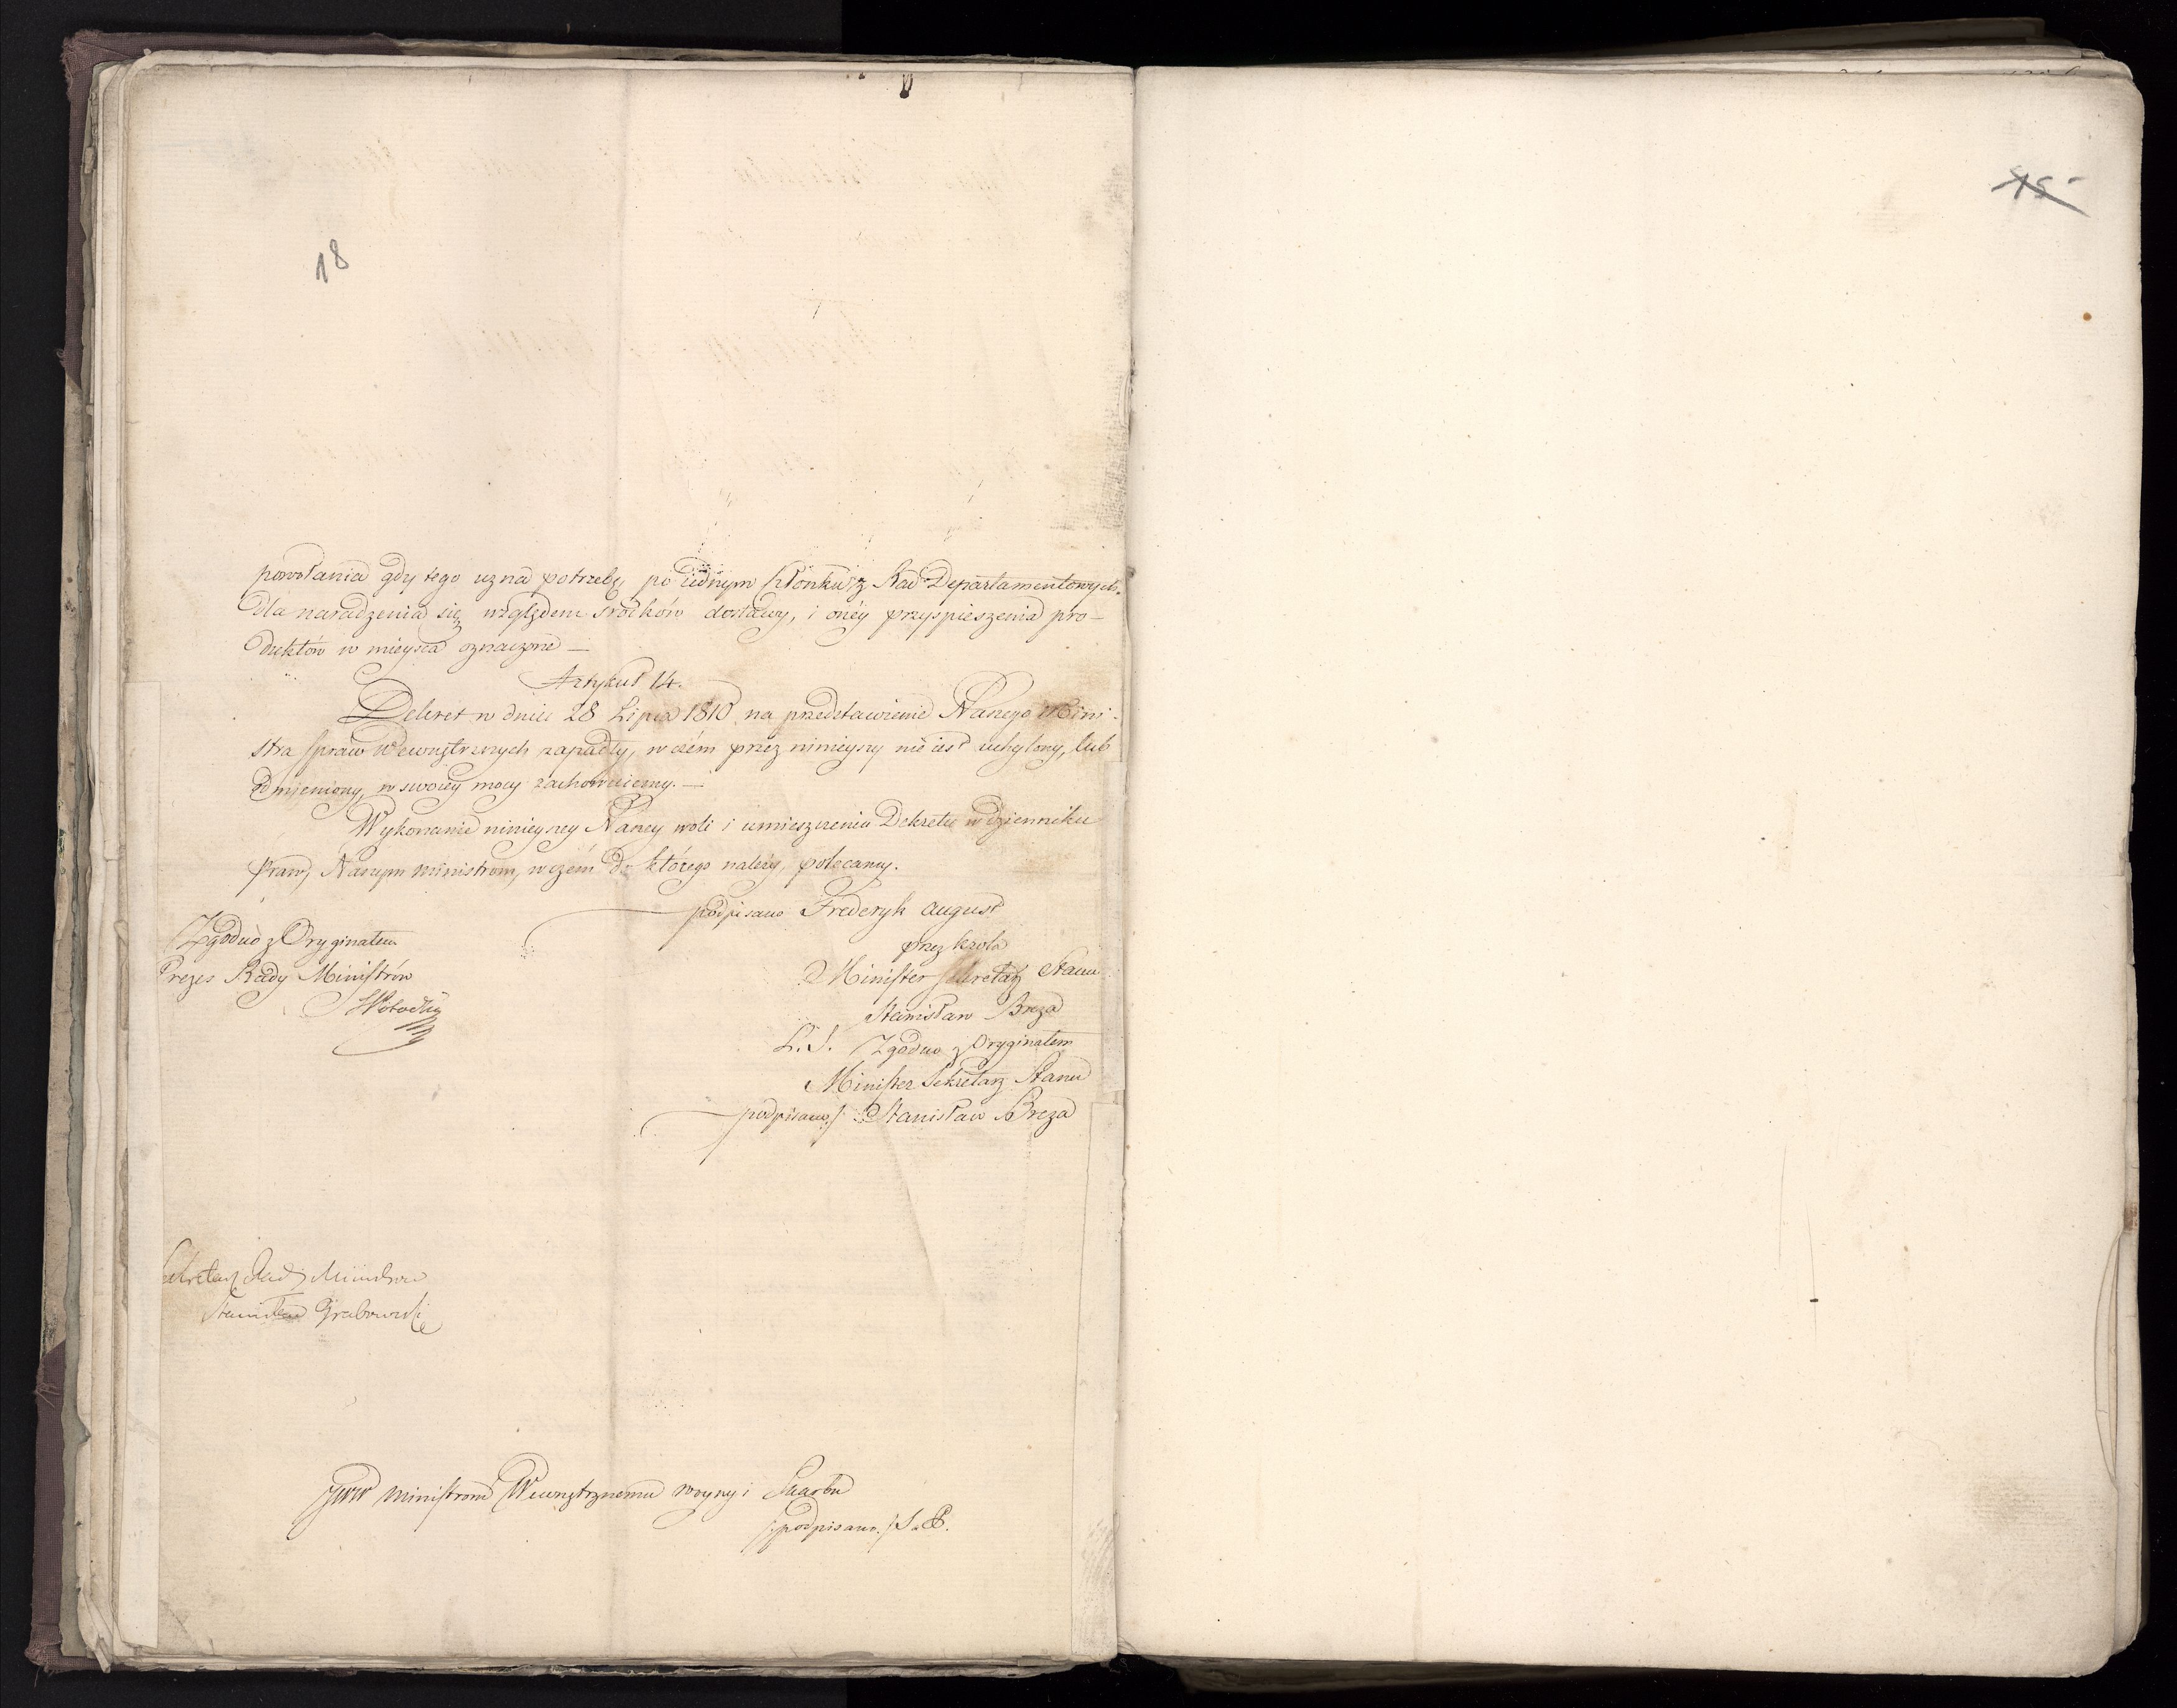 18
powołania gdy tego uzna potrzebę po iednym Członku z Rad Departamentowych
dla naradzenia się względem srodków dostawy, i onéy przyspieszenia pro-
duktów w mieysca oznaczone —
Artykuł 14.
Dekret w dniu 28 Lipca 1810 na przedstawienie Naszego Mini-
stra Spraw Wewnętrznych zapadły, w czém przez ninieyszy nie iest uchylony, lub
odmieniony, w swoiéy mocy zachowuiemy. —
Wykonanie ninieyszey Naszey woli i umieszczenie Dekretu w dzienniku
Praw, Naszym Ministrom, w czém do którego należy, polecamy.
podpisano Frederyk August
przez króla
Minister Sekretarz Stanu
Stanisław Breza
L. S. Zgodno z Oryginałem
Minister Sekretarz Stanu
podpisano/ Stanisław Breza
Zgodno z Oryginałem
Prezes Rady Ministrów
SPotocki
Sekretarz Rady Ministrów
Stanisław Grabowski
JWW Ministrom Wewnętrznemu woyny i Skarbu
/:podpisano./ S. B.
15